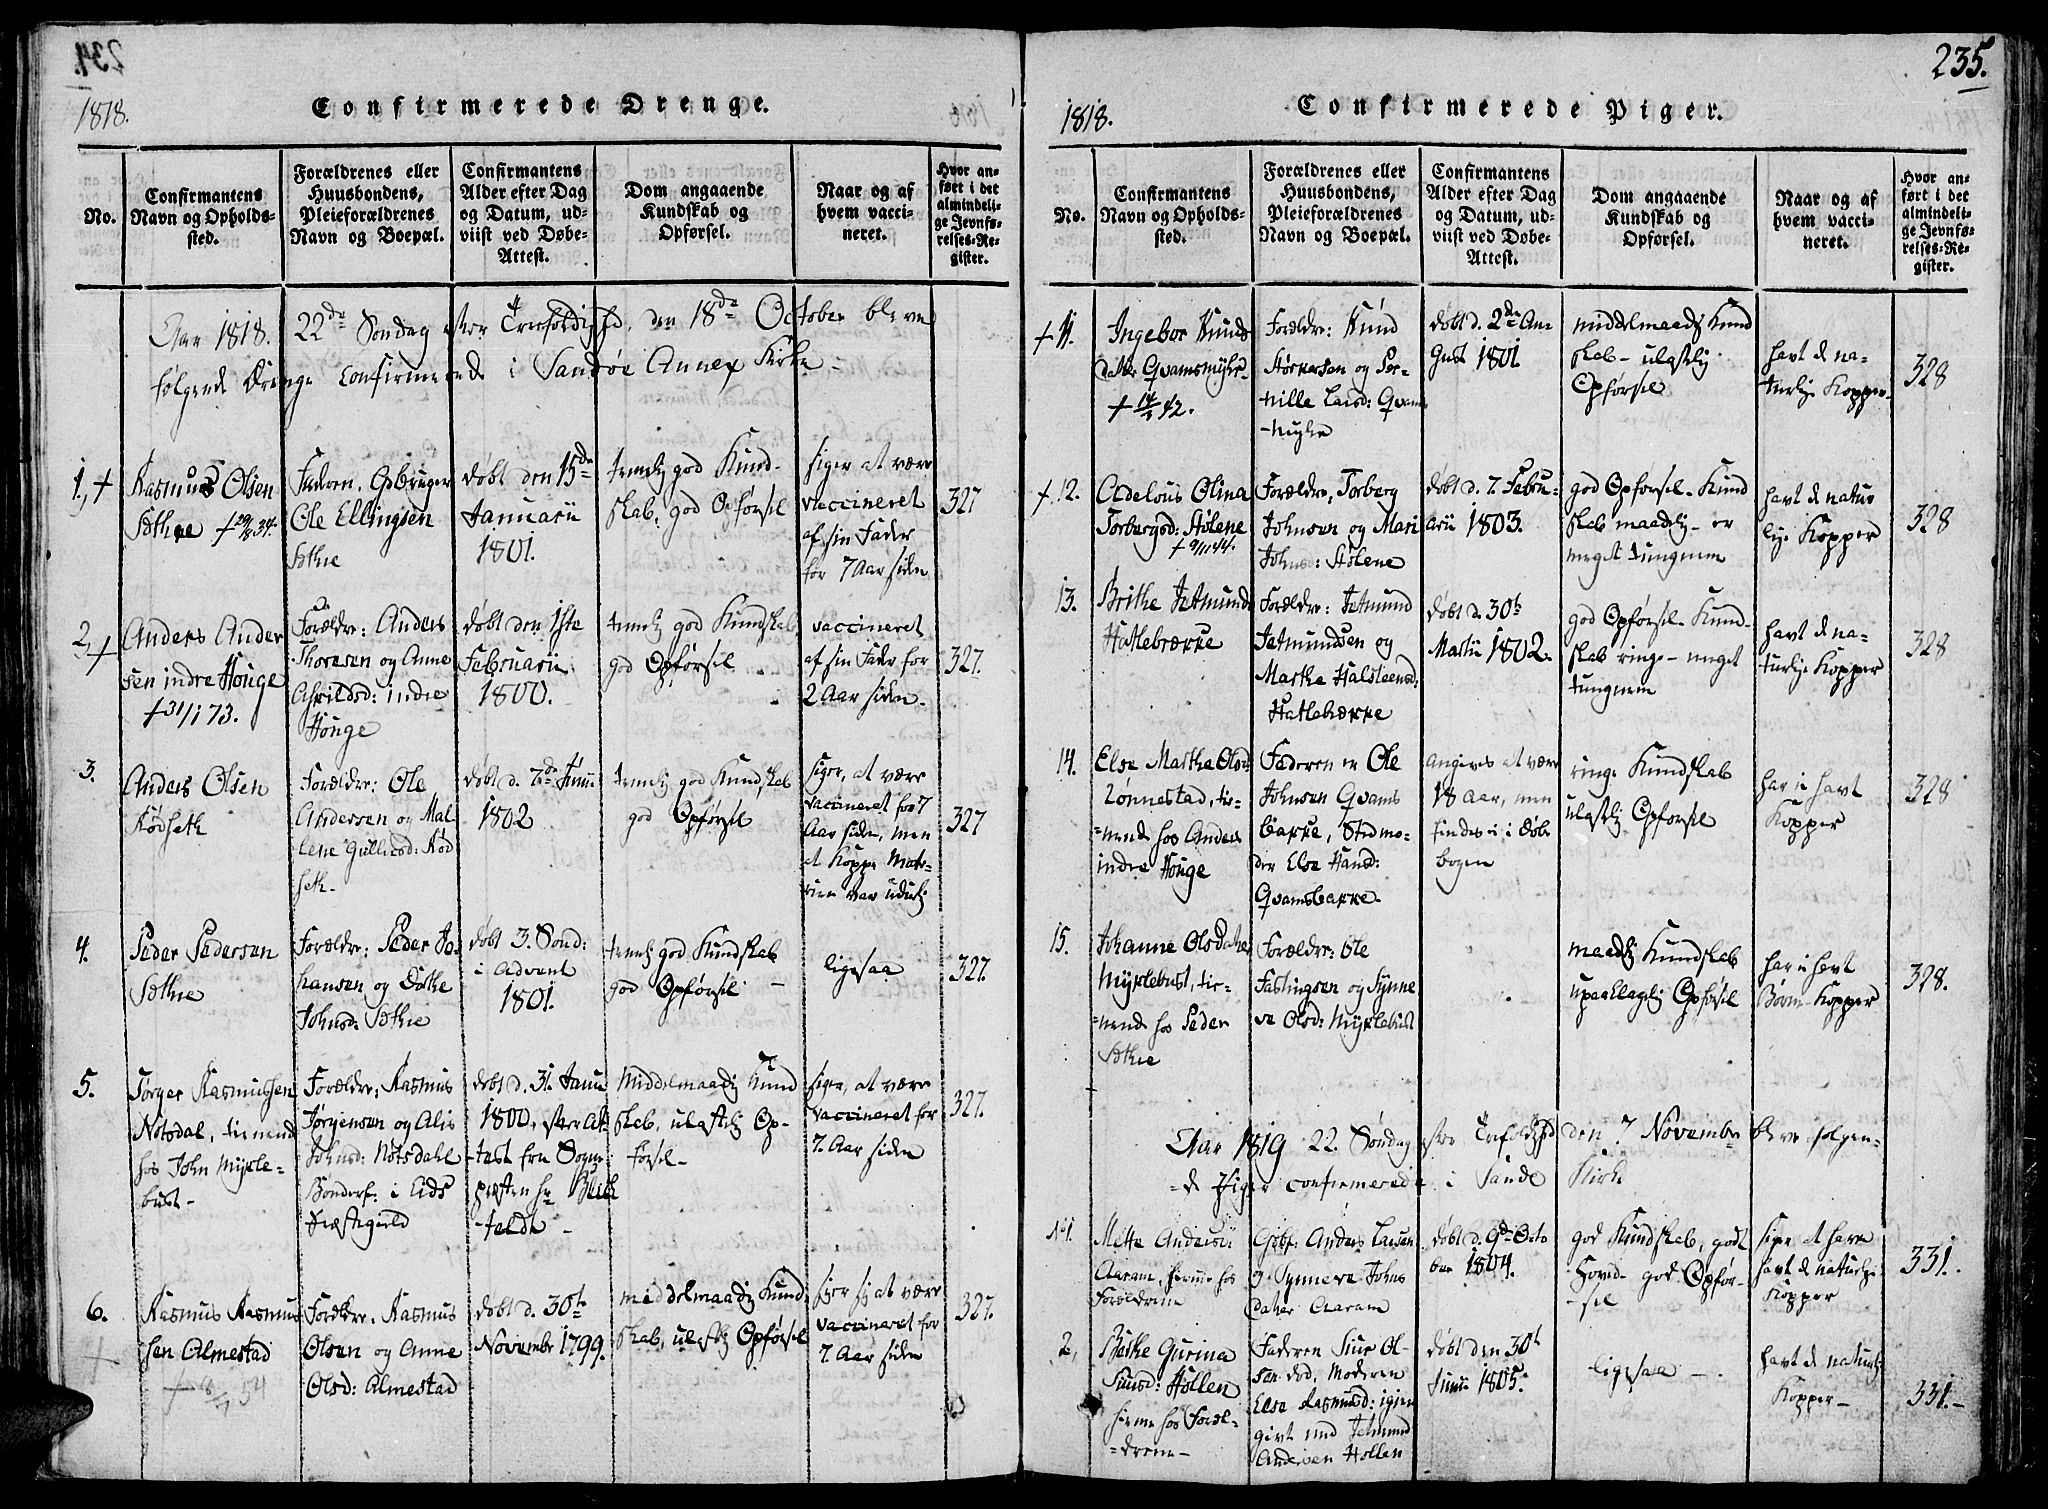 234.
1818.
Confirmerede Drenge.
No.
Confirmantens
Navn og Opholds-
sted.
Forældrenes eller
Huusbondens,
Pleieforældrenes
Navn og Boepæl.
Confirmantens
Alder efter Dag
og Datum, ud-
viist ved Døbe-
Attest.
Dom angaaende
Kundskab og
Opførsel.
Naar og af
hvem vacci-
neret.
Hvor an-
ført i det
almindeli-
ge Jevnfø-
relses-Re-
gister.
Aar 1818. 22de Søndag efter Trefoldighd, den 18de October bleve
følgende Drenge confirmerede i Sandøe Annex Kirke -
1, +
Rasmus Olsen
Sæthre + 34.
Faderen, Gdbruger
Ole Ellingsen
Sæthre
døbt den 15de
Januarii
1801.
temel. god Kund-
skab, god Opførsel
siger at være
vaccineret
af sin Fader
for 7 Aar siden
327
2, +
Anders Ander
sen indre Houge
+ 31/1 73.
Forældre: Anders
Thoresen og Anne
indre
Houge
døbt den 1ste
Februarii
1800.
temel. god Kundskab,
god Opførsel
vaccineret
af sin Fader for
2 Aar siden.
327.
3.
Anders Olsen
Rødseth
Forældre: Ole
Andersen og Mal
lene Gulliksd: Rød
seth.
døbt d. 7de Junii
1802
temel. god Kundskab
god Opførsel
siger, at være
vaccineret for 7
Aar siden, men
at Koppe Mate-
rien var
327
4.
Peder Pedersen
Sæthre
Forældre: Peder Jo-
hansen og Dothe
Johnsd: Sæthre
døbt 3. Sønd:
i Advent
1801.
temel. god Kundskab
god Opførsel
ligesaa
327.
5.
Jørgen Rasmussen
Nøtsdal, tienende
hos John Mykle-
bust -
Forældre: Rasmus
Jørgensen og Alis
Johnsd: Nøtsdahl
Bønderf: i Eids
Præstegield
døbt d. 31. Janu
1800, efter At-
test fra Sogne-
præsten hr
feldt -
middelmaadig Kund
skab, ulastelig Op-
førsel -
siger, at være
vaccineret for
7. Aar siden
327.
6.
+
Rasmus Rasmus
sen Almestad
+ 8 54
Forældre: Rasmus
Olsen og Anne
Olsd: Almestad
døbt d. 30te
November 1799.
middelmaadig Kund
skab, ulastel. Opførsel
siger sig at være
vaccineret for
7. Aar siden
327.
235.
1818.
Confirmerede Piger.
No.
Confirmantens
Navn og Opholds-
sted.
Forældrenes eller
Huusbondens,
Pleieforældrenes
Navn og Boepæl.
Confirmantens
Alder efter Dag
og Datum, ud-
viist ved Døbe-
Attest.
Dom angaaende
Kundskab og
Opførsel.
Naar og af
hvem vacci-
neret.
Hvor an-
ført i det
almindeli-
ge Jevnfø-
relses-Re-
gister.
+ 11.
Ingebor Knuds
datter Qvamsmyhr-
+ 42.
Forældre: Knud
Størkersen og Per-
nille Larsd: Qvams
-myhr
døbt d. 2de Au-
gust 1801
middelmaads Kund
skab - ulastelig
Opførsel
havt de na-
turlige Kopper-
328
+ 12.
Adelous Olina
Torbergsd: Stølene
+ 9/11 44.
Forældre: Torberg
Johnsen og Mari
Johnsd: Stølene
døbt d. 7. Febru-
arii 1803.
god Opførsel - Kund
skab maadelig - er
meget tungnem
havt de natur
lige Kopper
328
13.
Brithe Jetmunds
Hatlebrække
Forældre: Jetmund
Jetmundsen og
Marthe Halsteensd:
Hatlebrække
døbt d. 30te
Martii 1802.
god Opførsel - Kund-
skab ringe - meget
tungnem
havt de na-
turlige Kopper
328
14.
Else Marthe Olsd:
Lønnestad, tie-
=nende hos Anders
indre Houge
Faderen er Ole
Johnsen Qvams
bakke, Stedmo-
der Else Hansd:
Qvamsbakke.
angives at være
18 Aar, men
findes i i Døbe
bogen
ringe Kundskab
ulastelig Opførsel
har i havt
Kopper
328
15.
Johanne Olsdatter
Myklebust, tie-
=nende hos Peder
Sæthre
Forældre: Ole
Fastingsen og Synne
ve Olsd: Myklebust
maadelig Kundskab
upaaklagelig Opførsel
har i havt
Børne-Kopper
328.
Aar 1819 22. Søndag efter Trefoldighd den 7 November bleve følgen-
=de Piger confirmerede i Sande Kirke
No 1.
Mette Andersd:
Aaram, hiemme hos
Forældrene
Gdbr: Anders Larsen
og Synneve Johns
datter Aaram
døbt d. 9de Octo
ber 1804.
god Kundskab, godt
Hoved - god Opfør-
-sel
siger at have
havt de naturlige
Kopper
331.
2,
Brithe Gurina
Siursd: Hollen
hiemme hos Foræl-
=drene -
Faderen Siur Ol-
sen død, Moderen
Else Rasmusd: igjen
givt med Jetmund
Andersen Hollen
døbt den 30te
Junii 1805.
ligesaa -
havt de naturl:
Kopper -
331.-